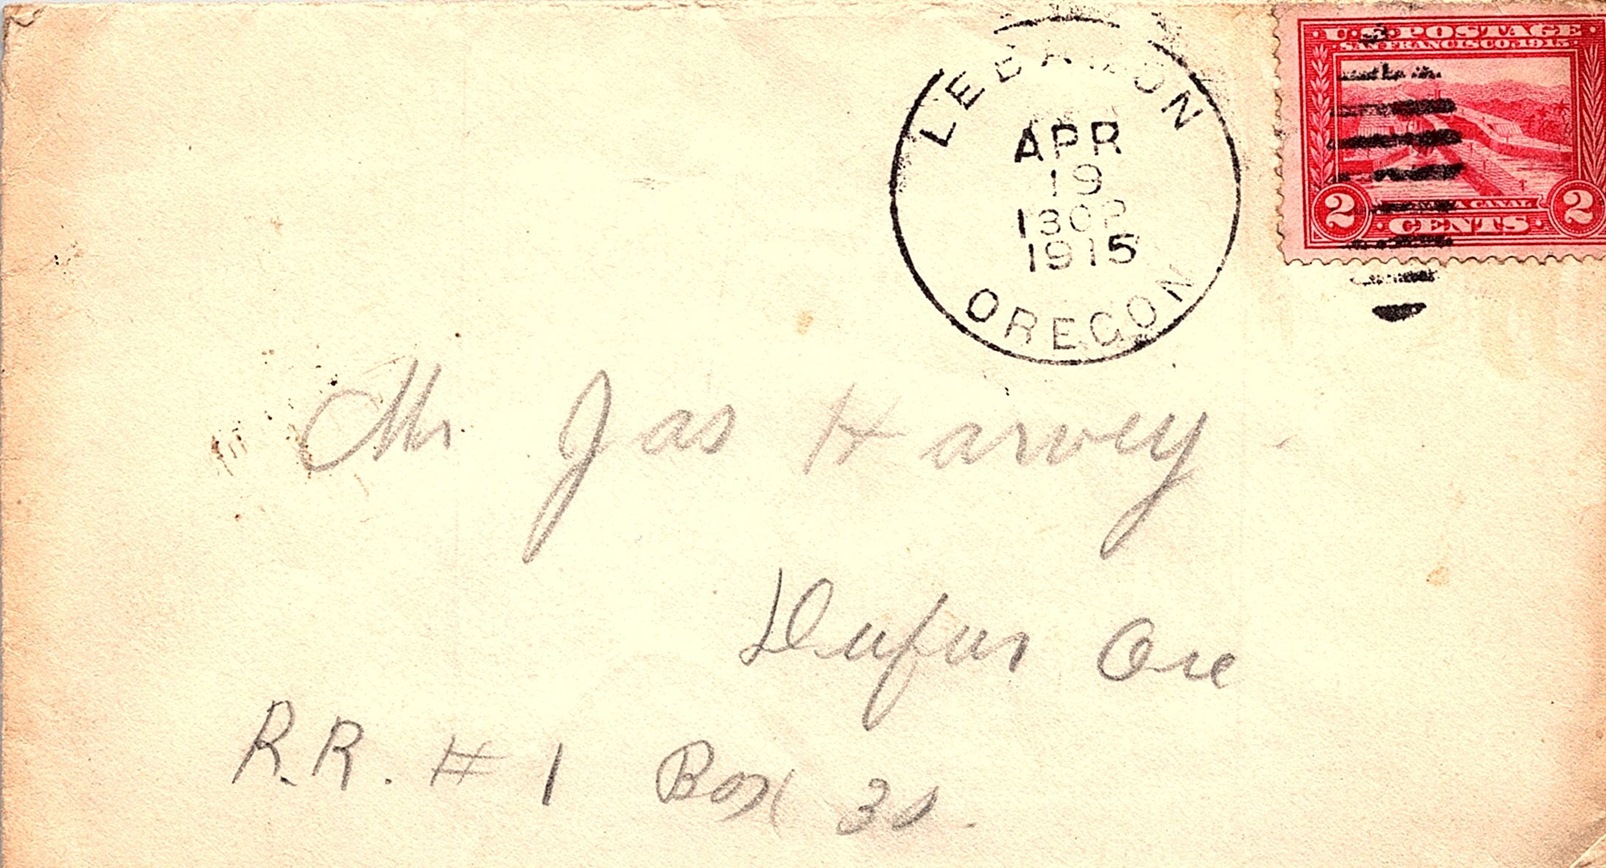 U.S. POSTAGE
SAN FRANCISCO, 1915
2 CANAL 2
CENTS
LEBANON
APR
19
1915
OREGON
Mr Jas Harvey
Dufur Ore
R.R. # 1 Box